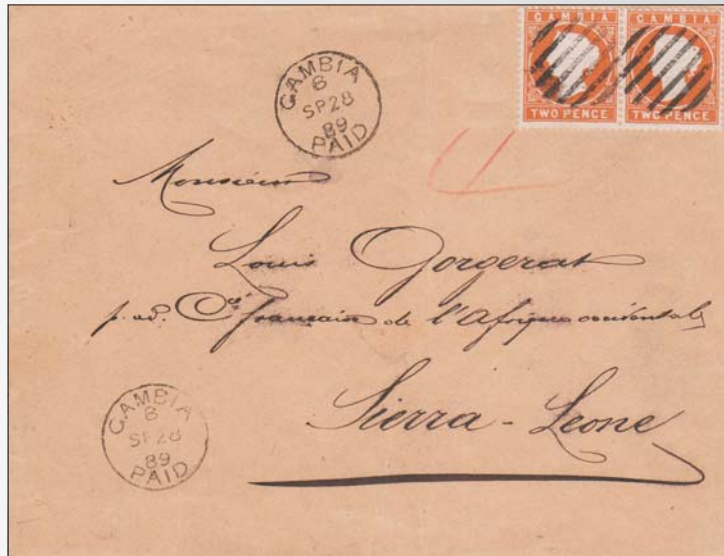 GAMBIA GAMBIA
TWO PENCE TWO PENCE
GAMBIA
B
SP 28
89
PAID
Monsieur
Louis Gorgerat
p. ad. Cie française de l'Afrique occidentale
Sierra-Leone
GAMBIA
B
SP 28
89
PAID